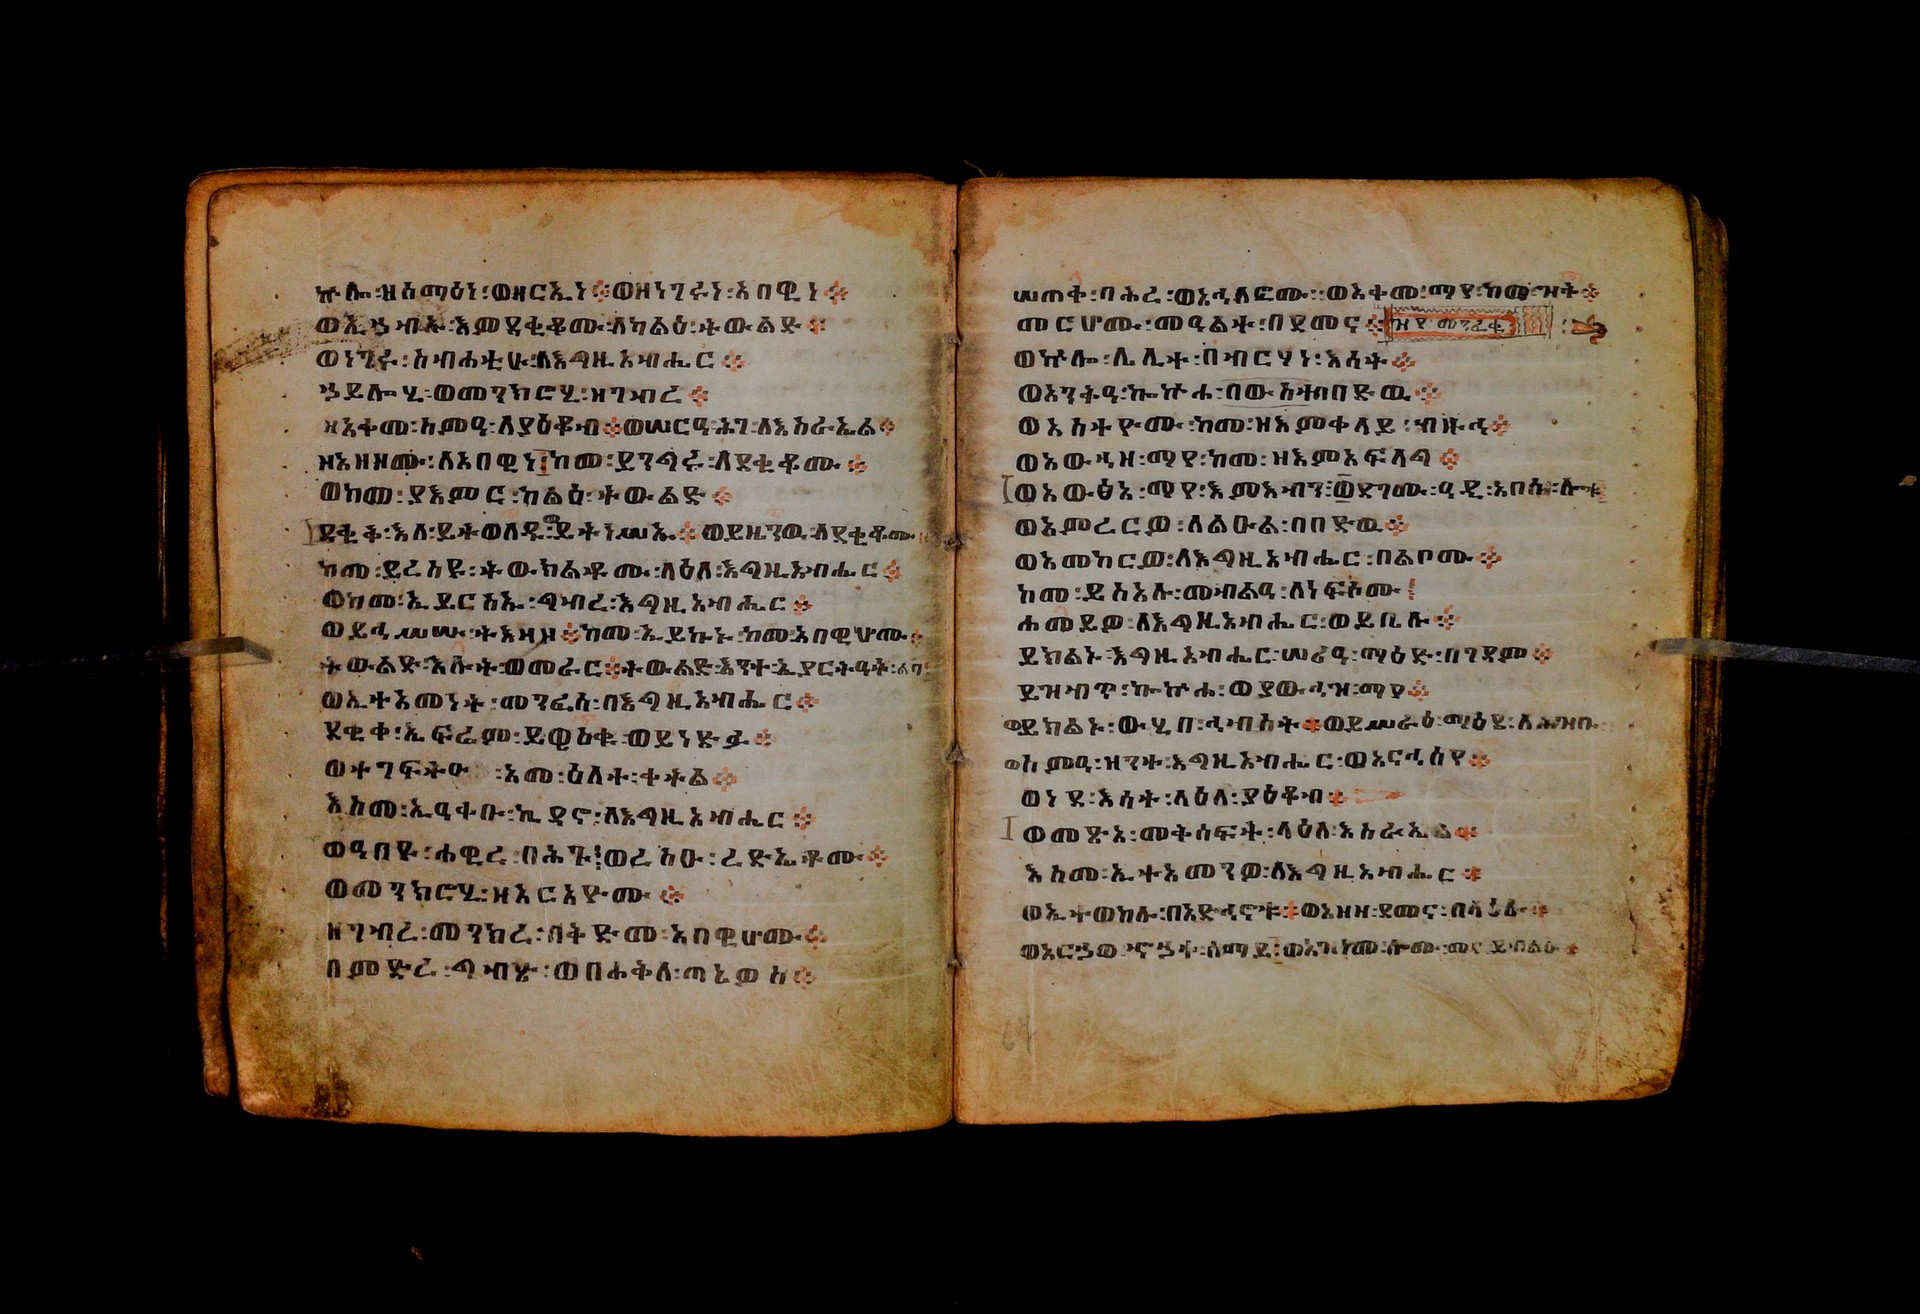 ኵሎ፡ዘሰማዕነ፡ወዘርኢነ፨ወዘነገሩነ፡አበዊነ፨
ወኢኃብኡ፡እምደቂቆሙ፡ለካልዕ፡ትውልድ፨
ወነገሩ፡ስብሐቲሁ፡ለእግዚአብሔር፨
ኃይሎሂ፡ወመንክሮሂ፡ዘገብረ፨
ዘአቀመ፡ስምዒ፡ለያዕቆብ፨ወሠርዓ፡ሕገ፡ለእስራኤል፨
ዘአዘዞሙ፡ለአበዊነ፡ከመ፡ይንግሩ፡ለደቂቆሙ፨
ወከመ፡ያእምር፡ካልዕ፡ትውልድ፨
ደቂቅ፡እለ፡ይትወለዱ፡ይትነሥኡ፨ወይዜንዉ፡ለደቂቆሙ
ከመ፡ይረስዩ፡ትውክልቶሙ፡ላዕለ፡እግዚአብሔር፨
ወከመ፡ኢይርስኡ፡ግብረ፡እግዚአብሔር፨
ወይኅሥሡ፡ትእዛዞ፨ከመ፡ኢይኩኑ፡ከመ፡አበዊሆሙ፨
ትውልድ፡እሉት፡ወመራር፨ትውልድ፡እንተ፡ኢያርትዓት፡ልባ
ወኢተአመነት፡መንፈሳ፡በእግዚአብሔር፨
ደቂቀ፡ኤፍሬም፡ይዌስቁ፡ወይነድፉ፨
ወተገፍትዑ፡አመ፡ዕለተ፡ቀትል፨
እስመ፡ኢዓቀቡ፡ኪዳኖ፡ለእግዚአብሔር፨
ወዓበዩ፡ሐዊረ፡በሕጉ፡ወረስዑ፡ረድኤቶሙ፨
ወመንክሮሂ፡ዘአርአዮሙ፨
ዘገብረ፡መንክረ፡በቅድመ፡አበዊሆሙ፨
በምድረ፡ግብጽ፡ወበሐቅለ፡ጣኔዎስ፨
ሠጠቀ፡ባሕረ፡ወአኅለፎሙ፡ወአቀመ፡ማየ፡ከመ፡ዝቅ፨
መርሆሙ፡መዓልተ፡በደመና፨
ወኵሎ፡ሌሊተ፡በብርሃነ፡እሳት፨
ወአንቅዓ፡ኰኵሐ፡በውስተ፡በድዉ፨
ወአስተዮሙ፡ከመ፡ዘእምቀላይ፡ብዙኅ፨
ወአውኃዘ፡ማየ፡ከመ፡ዘእምአፍላግ፨
ወአውፅአ፡ማየ፡እምእብን፡ወደገሙ፡ዓዲ፡አበሱ፡ሎቱ
ወአምረርዎ፡ለልዑል፡በበድዉ፨
ወአመከርዎ፡ለእግዚአብሔር፡በልቦሙ፨
ከመ፡ይስአሉ፡መብልዓ፡ለነፍሶሙ፡
ሐመይዎ፡ለእግዚአብሔር፡ወይቤሉ፨
ይክልኑ፡እግዚአብሔር፡ሠሪዓ፡ማዕድ፡በገዳም፨
ይዝብጥ፡ኰኵሐ፡ወያውኅዝ፡ማየ፨
ወይክልኑ፡ውሂበ፡ኅብስት፨ወይሥራዕ፡ማዕደ፡ለሕዝቡ
ወሰምዓ፡ዘንተ፡እግዚአብሔር፡ወአናኅሰየ፨
ወነደ፡እሳት፡ላዕለ፡ያዕቆብ፨
ወመጽአ፡መቅሰፍት፡ላዕለ፡እስራኤል፨
እስመ፡ኢተአመንዎ፡ለእግዚአብሔር፨
ወኢተወከሉ፡በአድኅኖቱ፨ወአዘዘ፡ደመና፡በላዕሉ፨
ወአርኃወ፡ኆኃተ፡ሰማይ፡ወአዝነመ፡ሎሙ፡መና፡ይብልዑ፨